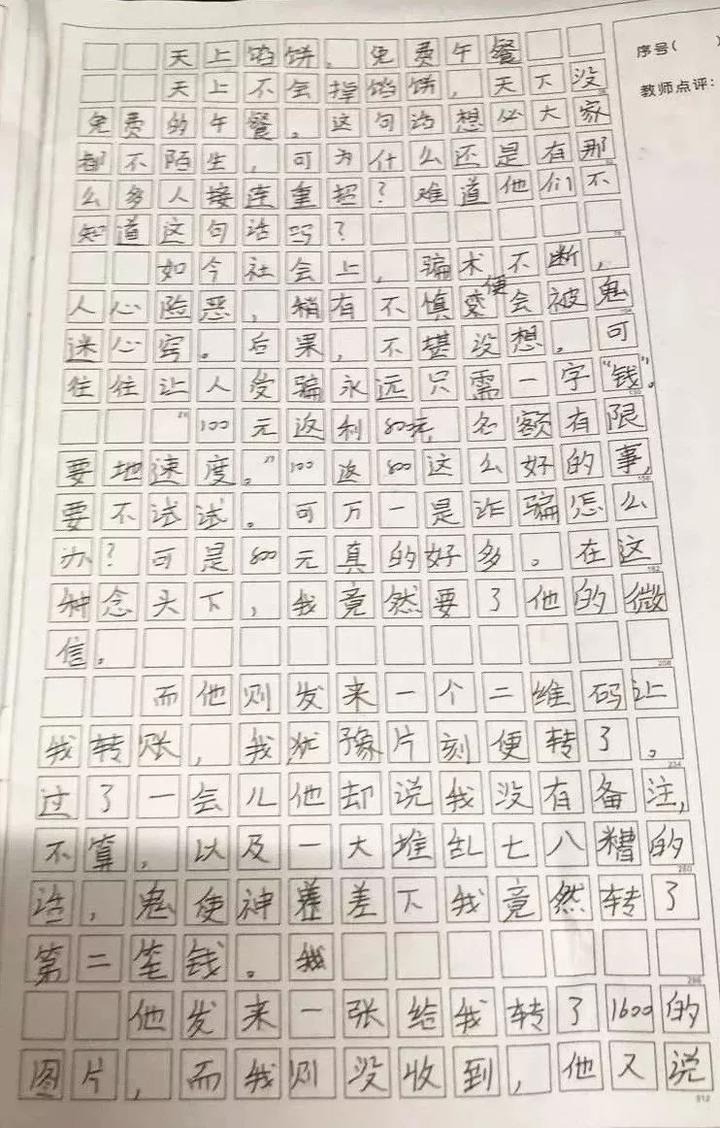 天上馅饼，免费午餐
序号( )
天上不会掉馅饼，天下没
教师点评:
免费的午餐。这句话想必大家
都不陌生，可为什么还是有那
么多人接连重蹈？难道他们不
知道这句话吗？
如今社会上，骗术不断，
人心险恶，稍有不慎便会被鬼
迷心窍。后果，不堪设想。可
往往让人受骗永远只需一字“钱”。
“100元返利800元，名额有限
要地速度。”100返800这么好的事，
要不试试。可万一是诈骗怎么
办？可是800元真的好多。在这
182
种念头下，我竟然要了他的微
信。
208
而他则发来一个二维码让
我转账，我犹豫片刻便转了。
234
过了一会儿他却说我没有备注，
不算，以及一大堆乱七八糟的
260
话，鬼使神差差下我竟然转了
第二笔钱。
286
他发来一张给我转了1600的
图片，而我则没收到，他又说
312